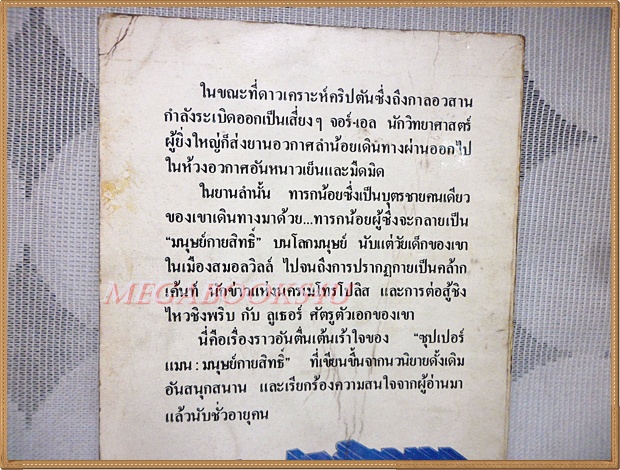 ในขณะที่ดาวเคราะห์คริปตันซึ่งถึงกาลอวสาน
กำลังระเบิดออกเป็นเสี่ยงๆ จอร์-เอล นักวิทยาศาสตร์
ผู้ยิ่งใหญ่ก็ส่งยานอวกาศลำน้อยเดินทางผ่านออกไป
ในห้วงอวกาศอันหนาวเย็นและมืดมิด
ในยานลำนั้น ทารกน้อยซึ่งเป็นบุตรชายคนเดียว
ของเขาเดินทางมาด้วย...ทารกน้อยผู้ซึ่งจะกลายเป็น
“มนุษย์กายสิทธิ์” บนโลกมนุษย์ นับแต่วัยเด็กของเขา
ในเมืองสมอลวิลล์ ไปจนถึงการปรากฏกายเป็นคล้าก
เค้นท์ นักข่าวแห่งนครเมโทรโปลิส และการต่อสู้ชิง
MEGABOOKS4U
ไหวชิงพริบ กับ ลูเธอร์ ศัตรูตัวเอกของเขา
นี่คือเรื่องราวอันตื่นเต้นเร้าใจของ “ซุปเปอร์
แมน : มนุษย์กายสิทธิ์” ที่เขียนขึ้นจากนวนิยายดั้งเดิม
อันสนุกสนาน และเรียกร้องความสนใจจากผู้อ่านมา
แล้วนับชั่วอายุคน